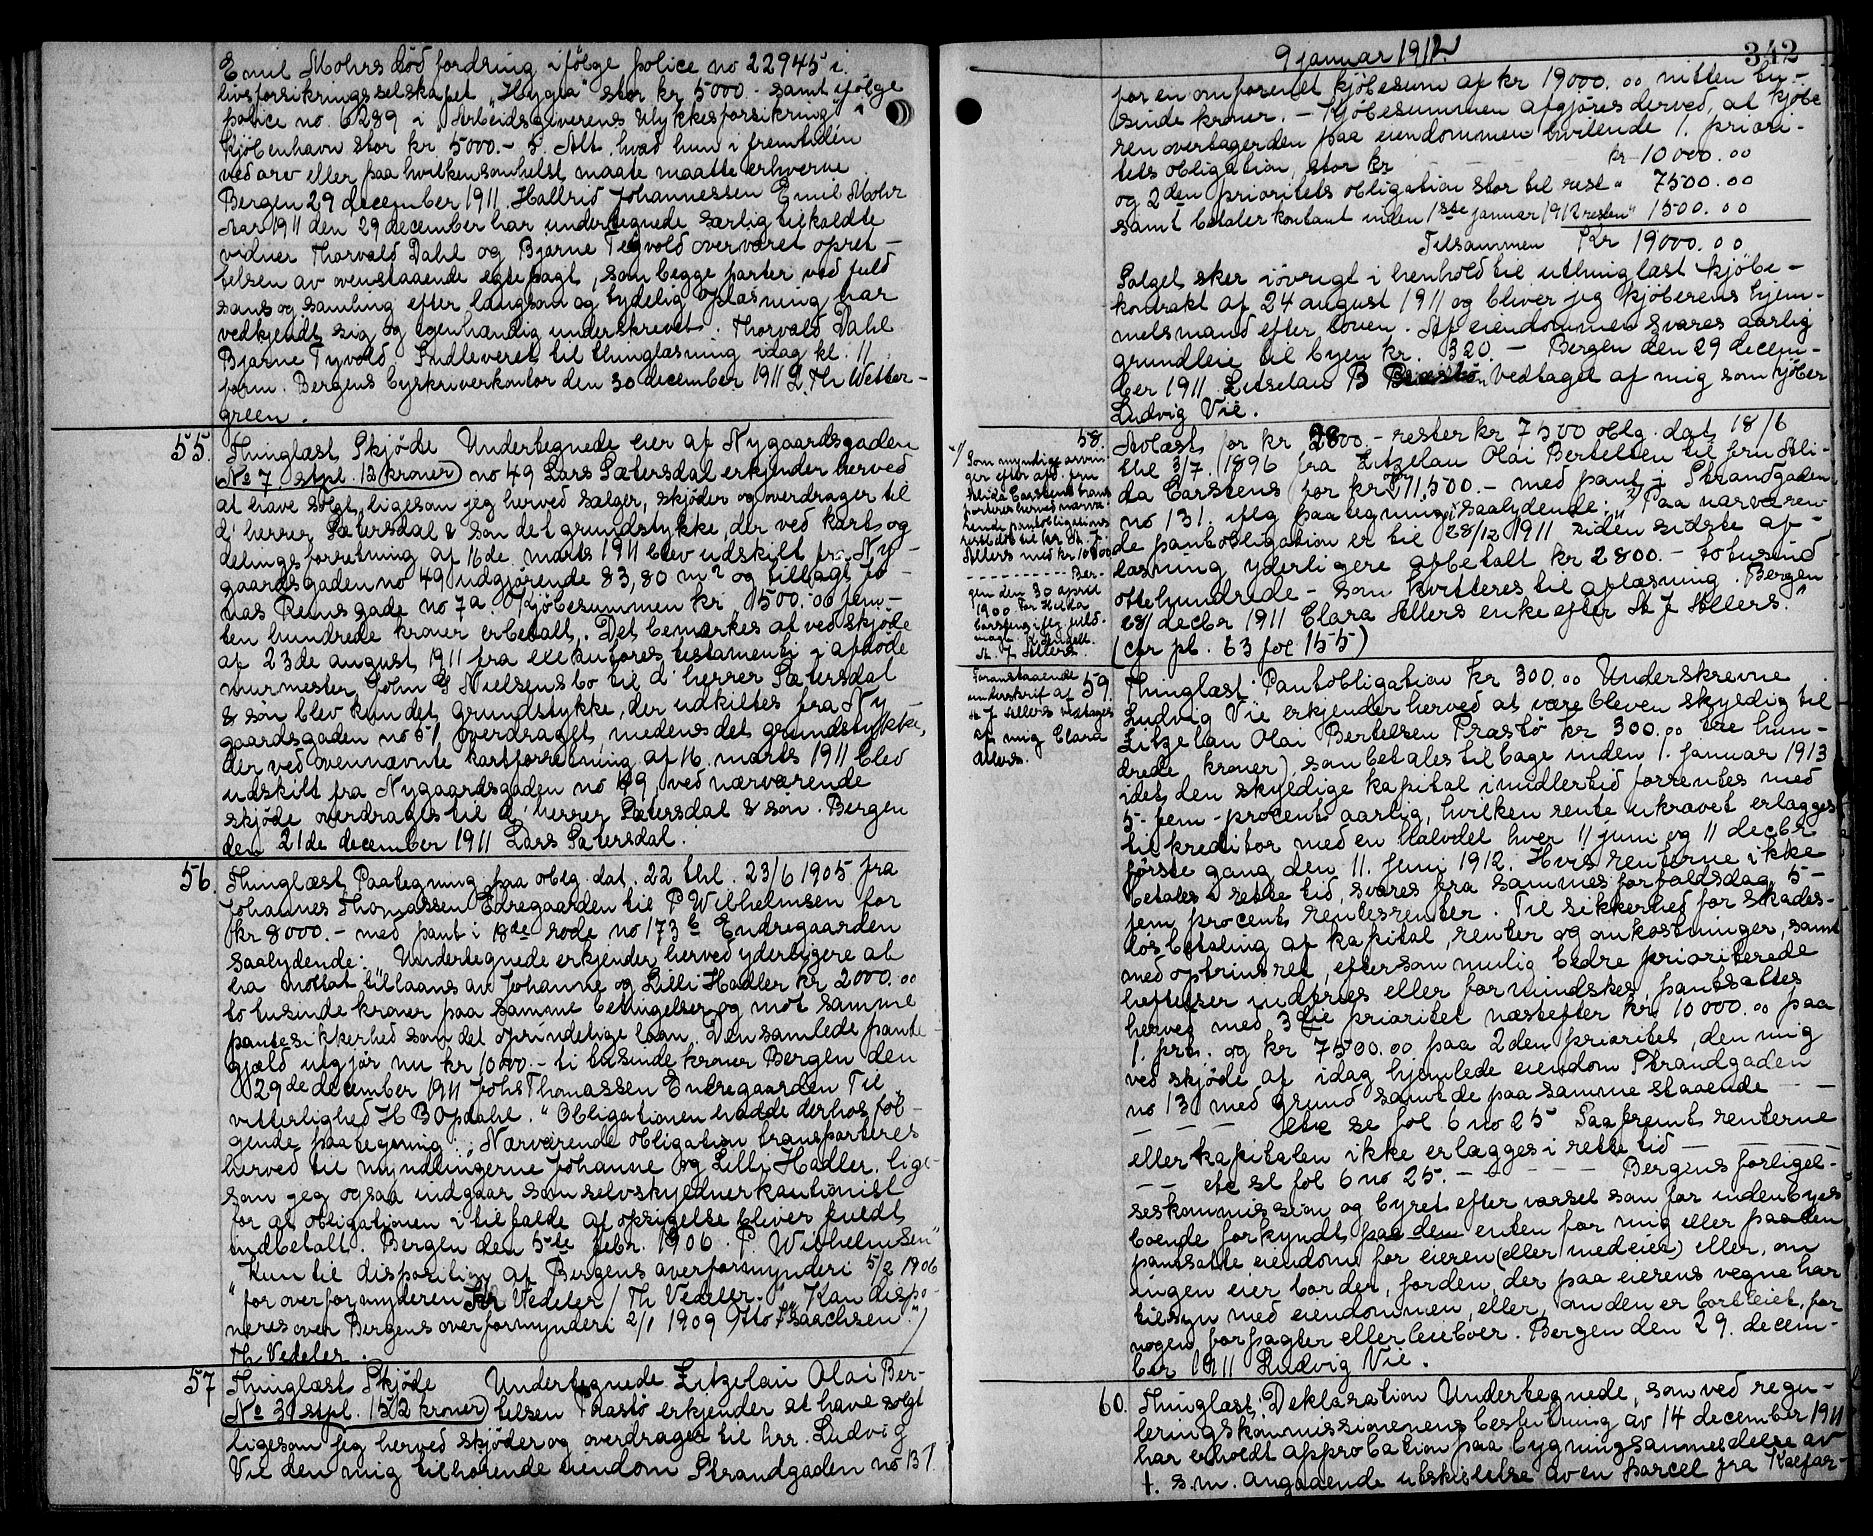 Emil Mohrs död fordring ifölge police no 22945 i
livsforsikringsselskapet "Hygea" stor kr 5000 - samt ifölge
police no. 6289 i "Arbeidsgiverenes Ulykkesforsikring" i
Kjöbenhavn stor kr 5000.- 5. Alt hvad hun i fremtiden
ved arv eller paa hvilkensomhelst maate maatte erhverve
Bergen 29 december 1911 Hallrid Johannessen Emil Mohr
Aar 1911 den 29 december har undertegnede særlig tilkaldte
vidner Thorvald Dahl og Bjarne Tyvold overværet opret-
telsen av ovenstaaende egtepagt, som begge parter ved fuld
sans og samling efter langsom og tydelig oplæsning har
vedkjendt sig og egenhændig underskrevet. Thorvald Dahl
Bjarne Tyvold. Indleveret til thinglæsning idag kl. 11
form. Bergens byskriverkontor den 30 december 1911 L. Th Wetter-
green.
55. Thinglæst Skjöde Undertegnede eier af Nygaardsgaden
No 7 stpl. 12 kroner) no 49 Lars Sætersdal erkjender herved
at have solgt, ligesom jeg herved sælger, skjöder og overdrager til
d' herrer Sætersdal & sön det grundstykke, der ved kart og
delingsforretning af 16de marts 1911 blev udskilt fra Ny-
gaardsgaden no 49 udgjörende 83,80 m2 og tillagt Jo-
nas Reinsgade no 7a. Kjöbesummen kr 1500.00 fem-
ten hundrede kroner er betalt. Det bemærkes at ved skjöde
af 23de august 1911 fra executores testamenti i afdöde
murmester John G Nielsens bo til d' herrer Sætersdal
& sön blev kun det grundstykke, der udskiltes fra Ny
gaardsgaden no 51 overdraget, medens det grundstykke,
der ved ovennævnte kartforretning af 16. marts 1911 blev
udskilt fra Nygaardsgaden no 49, ved nærværende
skjöde overdrages til d' herrer Sætersdal & sön. Bergen
den 21de december 1911 Lars Sætersdal.
56. Thinglæst Paategning paa oblg. dat. 22 thl. 23/6 1905 fra
Johannes Thomassen Edregaarden til P Wilhelmsen for
kr 8000.- med pant i 18de rode no 173b Endregaarden
saalydende: Undertegnede erkjender herved yderligere at
ha mottat tillaans av Johanne og Lilli Hadler kr 2000.00
to tusinde kroner paa samme betingelser og mot samme
pantesikkerhed som det oprindelige laan. Den samlede pante-
gjæld utgjör nu kr 10000.- ti tusinde kroner Bergen den
29de december 1911 Johs Thomassen Endregaarden Til
vitterlighed H B Opdahl. "Obligationen hadde derhos föl-
gende paategning: "Nærværende obligation transporteres
herved til myndlingerne Johanne og Lilli Hadler, lige-
som jeg ogsaa indgaar som selvskyldnerkautionist
for at obligationen i tilfælde af opsigelse bliver fuldt
indbetalt. Bergen den 5te febr. 1906. P. Wilhelmsen"
"Kun til disposition af Bergens overformynderi 5/2 1906
"for overformynderen Fr Vedeler / Th Vedeler." "Kan dispo-
neres over Bergens overformynderi 2/1 1909 Otto Isaachsen"/
Th Vedeler.
57 Thinglæst Skjöde Undertegnede Litzelau Olai Ber-
(No 3 stpl. 152 kroner) telsen Præstö erkjender at have solgt
ligesom jeg herved skjöder og overdrager til hrr. Ludvig
Vie den mig tilhörende eiendom Strandgaden no 131
9 januar 1912
342
for en omforenet kjöbesum af kr 19000.00 nitten tu-
sinde kroner. - Kjöbesummen afgjöres derved, at kjöbe
ren overtager den paa eiendommen hvilende 1. priori-
tets obligation, stor kr kr 10000.00
og 2den prioritets obligation stor til rest " 7500.00
samt betaler kontant inden 1ste januar 1912 resten " 1500.00
Tilsammen Kr 19000.00
Salget sker iövrigt i henhold til uthinglæst kjöbe-
kontrakt af 24 august 1911 og bliver jeg kjöberens hjem-
melsmand efter loven. Af eiendommen svares aarlig
grundleie til byen kr. 320. - Bergen den 29 decem-
ber 1911 Litselau B Præstö, Vedtaget af mig som kjöber
Ludvig Vie.
58. Avlæst for kr 2800.- rester kr 7500 oblg. dat. 18/6
thl 3/7. 1896 fra Litzelau Olai Bertelsen til fru Ali-
da Carstens for kr 11,500.- med pant i Strandgaden
no 131. iflg paategning saalydende: "Paa nærværen-
de pantobligation er til 28/12 1911 siden sidste af-
læsning yderligere afbetalt kr 2800.- totusind
ottehundrede - som kvitteres til aflæsning. Bergen
28/ decbr 1911 Clara Allers enke efter A J Allers."
(cfr pb. 63 fol 155)
Som myndige arvin
ger efter afd. fru
Alida Carstens trans
porteres herved nærvæ
rende pantobligations
restbelöb til hr A. J.
Allers med kr 10800
- - - - Ber-
gen den 30 april
1900 For Hilda
Carstens iflg fuld-
magt
A. J. Allers.
Foranstaaende
underskrift af
A J Allers vedtages
af mig Clara
Allers.
59. Thinglæst Pantobligation kr 300.00 Underskrevne
Ludvig Vie erkjender herved at være bleven skyldig til
Litzelau Olai Bertelsen Præstö kr 300.00 tre hun-
drede kroner), som betales tilbage inden 1. januar 1913
idet den skyldige kapital imidlertid forrentes med
5 - fem - procent aarlig, hvilken rente ukrævet erlægges
til kreditor med en halvdel hver 11 juni og 11 decbr
förste gang den 11. juni 1912. Hvis renterne ikke
betales i rette tid, svares fra sammes forfaldsdag 5 -
fem procent rentesrenter. Til sikkerhed for skades-
lösbetaling af kapital, renter og omkostninger, samt
med optrinsret, eftersom mulig bedre prioriterede
heftelser indfries eller formindskes, pantsættes
herved med 3die prioritet næstefter kr. 10000.00 paa
1. prt. og kr 7500.00 paa 2den prioritet, den mig
ved skjöde af idag hjemlede eiendom Strandgaden
no 131 med grund samt de paa samme staaende - -
- - - - etc se fol 6 no 25 Saafremt renterne
eller kapitalen ikke erlægges i rette tid - - - -
- - etc se fol 6 no 25. - - - - - Bergens forligel-
seskommission og byret efter varsel som for indenbyes
boende forkyndt paa den enten for mig eller paa den
pantsatte eiendom for eieren (eller medeier) eller, om
ingen eier bor der, for den, der paa eierens vegne har
tilsyn med eiendommen, eller, om den er bortleiet, for
nogen forpagter eller leieboer. Bergen den 29. decem-
ber 1911 Ludvig Vie.
60. Thinglæst Deklaration Undertegnede, som ved regu-
leringskommissionenens beslutning av 14 december 1911
har erholdt approbation paa bygningsanmeldelse av
t. s.m. angaaende utskillelse av en parcel fra Kalfar-